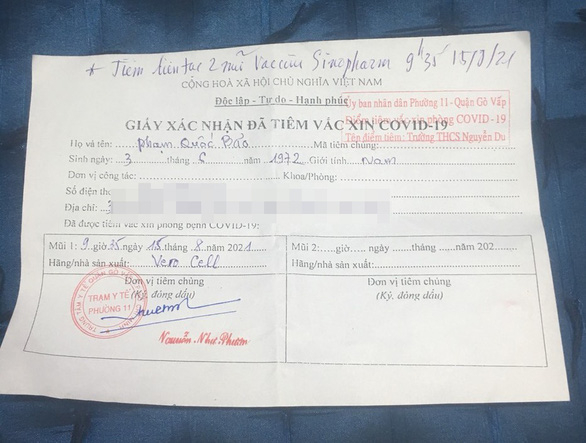 * Tiêm liên tục 2 mũi Vaccine Sinopharm 9h35 15/8/21
CỘNG HOÀ XÃ HỘI CHỦ NGHĨA VIỆT NAM
Độc lập - Tự do - Hạnh phúc
Ủy ban nhân dân Phường 11 - Quận Gò Vấp
Điểm tiêm vắc xin phòng COVID - 19
Tên điểm tiêm: Trường THCS Nguyễn Du
GIẤY XÁC NHẬN ĐÃ TIÊM VẮC XIN COVID-19
Họ và tên: Phạm Quốc Bảo Mã tiêm chủng:
Sinh ngày: 3 tháng 6 năm 1972 Giới tính: Nam
Đơn vị công tác: Khoa/Phòng:
Số điện tho
Địa chỉ: 3
Đã được tiêm vắc xin phòng bệnh COVID-19:
Mũi 1: 9 giờ 35 ngày 15 tháng 8 năm 2021
Hãng/nhà sản xuất: Vero Cell
Đơn vị tiêm chủng
(Ký, đóng dấu)
TRẠM Y TẾ
PHƯỜNG 11
Mũi 2: giờ ngày tháng năm 202
Hãng/nhà sản xuất:
Đơn vị tiêm chủng
(Ký, đóng dấu)